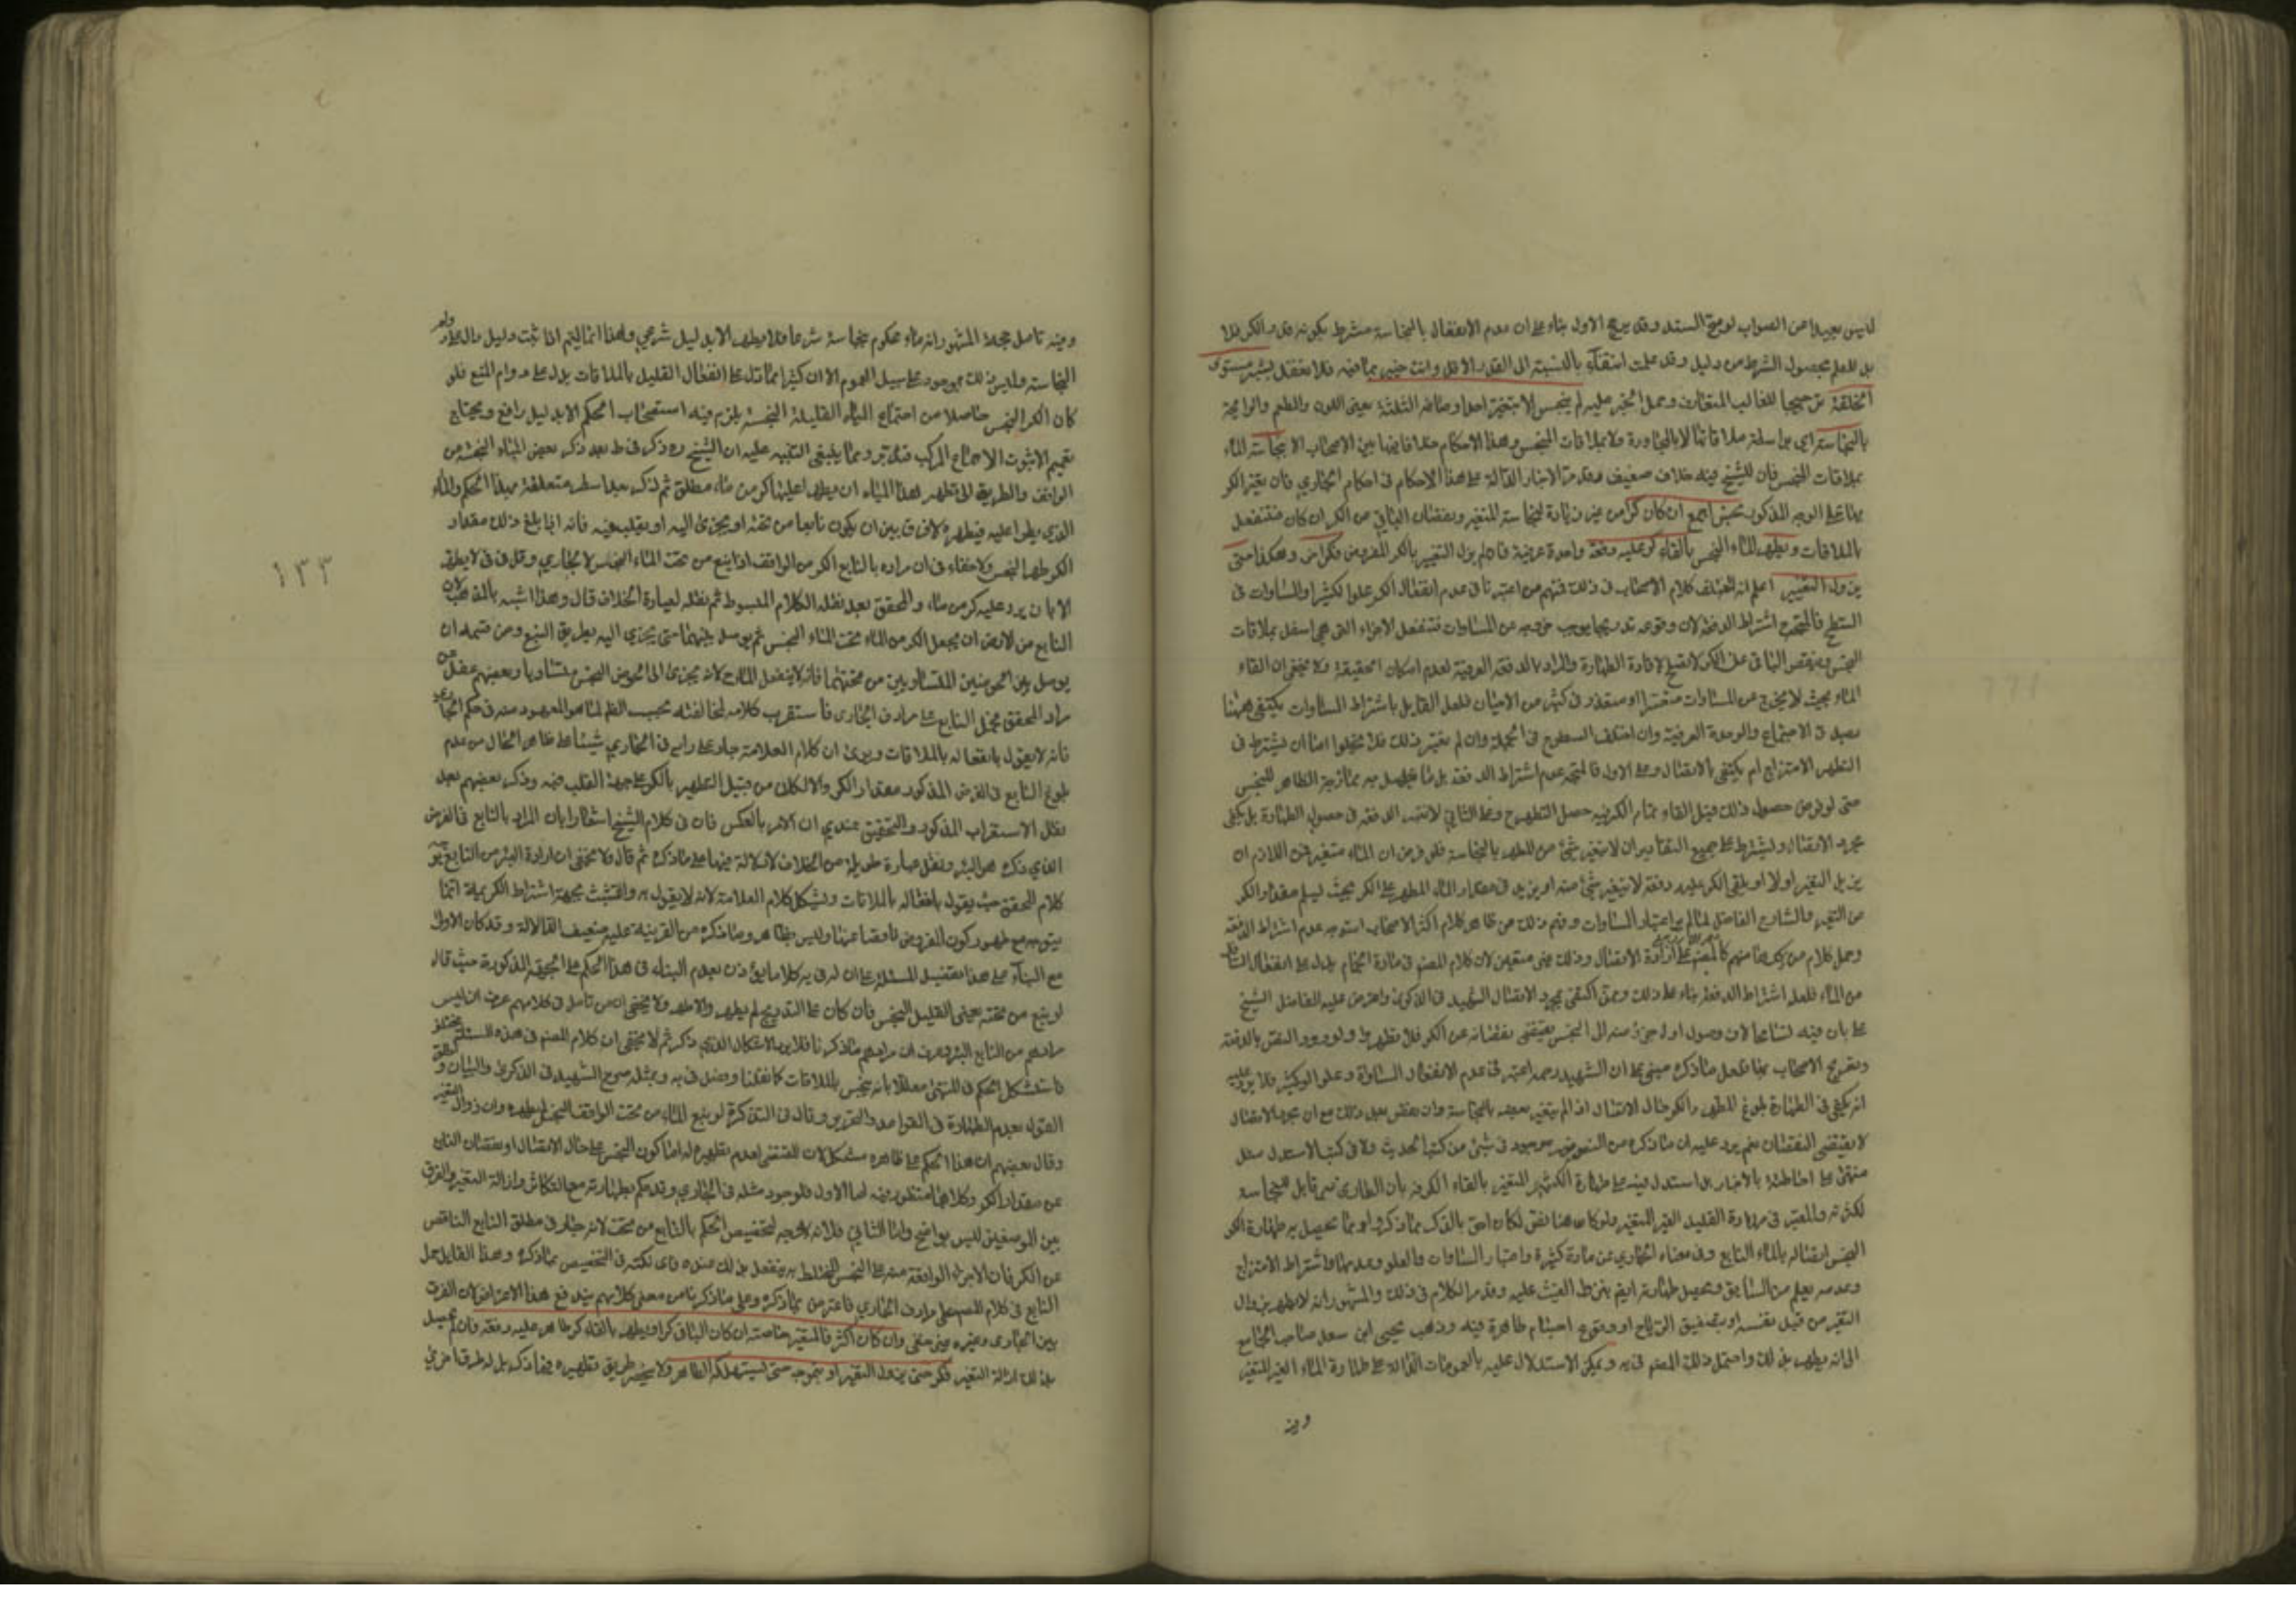 ليس بعيدا من الصواب لوضح السند وقد يرجح الاول بناء على ان عدم الانفعال بالنجاسة مشرط بكونه قدر الكر فلا
بد للعلم بحصول الشرط من دليل وقد علمت انتفاء بالنسبة الى القدر الاقل وانت خبير بما فيه فلا تغفل يشبر مستوى
الخلقة ترجيحا للغالب المتعارف وحمل الخبر عليه لم ينجس الا بتغير احد اوصافه الثلثة يعنى اللون والطعم والرايحة
بالنجاسة اي بواسطة ملاقاتها لا بالمجاورة ولا بملاقات المتنجس وهذا الاحكام بين الاصحاب الا نجاسة الماء
بملاقات النجس فان للشيخ فيه خلاف ضعيف وقد مر الاخبار الدالة على هذا الاحكام في احكام الجاري فان تغير الكر
بها على الوجه المذكور نجس اجمع ان كان كرا من غير زيادة لنجاسة المتغير ونقصان الباقي من الكر ان كان فتنفعل
بالملاقات ويطهر الماء النجس بالقاء كر عليه دفعة واحدة عرفية فان لم يزل التغير بالكر المفروض فكر اخر وهكذا حتى
يزول التغيير اعلم انه اختلف كلام الاصحاب في ذلك فمنهم من اعتبر في عدم انفعال الكر علوا لكثير او المساوات في
السطح فالمتجه اشتراط الدفعة لان وقوعه تدريجا يوجب خروجه عن المساوات فتنفعل الاجزاء التي هي اسفل بملاقات
النجس وينقص الباقي عن الكر ولا يصلح لافادة الطهارة والمراد بالدفعة العرفية لعدم امكان الحقيقية ولا يخفى ان القاء
الماء بحيث لا يخرج عن المساوات متعسر او متعذر في كثير من الاحيان فلعل القايل باشتراط المساوات يكتفي ههنا
بصدق الاجتماع والوحدة العرفية وان اختلف السطوح في الجملة وان لم يعتبر ذلك فلا يخلو اما ان يشترط في
التطهير الامتزاج ام يكتفي بالاتصال وعلى الاول فالمتجه عدم اشتراط الدفعة بل ما يحصل به ممازجة الطاهر للنجس
حتى لو فرض حصول ذلك قبل القاء تمام الكر فيه حصل التطهير وعلى الثاني لا تعتبر الدفعة في حصول الطهارة بل يكفي
مجرد الاتصال ويشترط على جميع التقادير ان لا يتغير شيء من المطهر بالنجاسة فلو فرض ان الماء متغير فمن اللازم ان
يزيل التغير اولا او يلقي الكر عليه دفعة لا يتغير شيء منه او يزيد في مقدار الماء المطهر على الكر بحيث يسلم مقدار الكر
من التغير والشارح الفاضل لما لم ير اعتبار المساوات وفهم ذلك من ظاهر كلام اكثر الاصحاب استوجه عدم اشتراط الدفعة
من الماء فلعله اشتراط الدفعة بناء على ذلك وممن اكتفى بمجرد الاتصال الشهيد في الذكرى واعترض عليه الفاضل الشيخ
على بان فيه تسامحا لان وصول اول جزء منه الى النجس يقتضي نقصانه عن الكر فلا يطهر ولورود النص بالدفعة
وتصريح الاصحاب بها ولعل ما ذكره مبني على ان الشهيد رحمه اعتبر في عدم الانفعال المساواة وعلو الكثير فلا يرد عليه
انه يكفي في الطهارة بلوغ المطهر الكر حال الاتصال اذا لم يتغير بعضه بالنجاسة وان نقص بعد ذلك مع ان مجرد الاتصال
لا يقتضي النقصان نعم يرد عليه ان ما ذكره من النصوص موجود في شيء من كتب الحديث ولا في كتب الاستدلال
النجس اتصاله بالماء النابع وفي معناه الجاري عن مادة كثيرة واعتبار المساوات والعلو وعدمها واشتراط الامتزاج
وعدمه يعلم من السابق ويحصل طهارته ايضا بنزول الغيث عليه وقد مر الكلام في ذلك والمشهور انه لا يطهر بزوال
التغير من قبل نفسه او بتصفيق الرياح او وقوع اجسام طاهرة فيه وذهب يحيى ابن سعيد صاحب الجامع
الى انه يطهر بذلك واحتمل ذلك المصنف في يه ويمكن الاستدلال عليه بالعمومات الدالة على طهارة الماء الغير المتغير
وفيه
وفيه تامل حجة المشهور انه ماء محكوم بنجاسة شرعا فلا يطهر الا بدليل شرعي وهذا انما يتم اذا ثبت دليل دال على دوام
النجاسة وليس ذلك بموجود على سبيل العموم الا ان كثيرا مما تدل على انفعال القليل بالملاقات يدل على دوام المنع فلو
كان الكر النجس حاصلا من اجتماع المياه القليلة النجسة يلزم فيه استصحاب الحكم الا بدليل رافع ويحتاج
تعميم الثبوت الاجماع المركب فتدبر ومما ينبغي التنبيه عليه ان الشيخ ره ذكر في ط بعد ذكر بعض المياه النجسة من
الواقف والطريق الى تطهير هذا المياه ان يطرأ عليها كر من ماء مطلق ثم ذكر بعد اسطر متعلقة بهذا الحكم والماء
الذي يطرأ عليه فيطهره لا فرق بين ان يكون نابعا من تحته او يجري اليه او يقلب فيه فانه اذا بلغ ذلك مقدار
الكر طهر النجس ولا خفاء في ان مراده بالنابع الكر من الواقف اذا نبع من تحت الماء النجس لا الجاري وقال في ف لا يطهر
الا بان يرد عليه كر من ماء والمحقق بعد نقله الكلام المبسوط ثم نقله لعبارة الخلاف قال وهذا اشبه بالمذهب لان
النابع من الارض ان يجعل الكر من الماء تحت الماء النجس ثم يوصل بينهما حتى يجري اليه بطريق النبع ومن قصد ان
يوصل بين الحوضين المتساويين من تحتهما فانه لا ينفعل الماء لانه يجري الى الحوض النجس متساويا وبعضهم غفل عن
مراد المحقق فحمل النابع على مرادف الجاري فاستغرب كلامه لمخالفته بحسب الظاهر لما هو المعهود منه في حكم الجاري
فانه لا يقول بانفعاله بالملاقات ويرى ان كلام العلامة جار على رايه في الجاري شيئا على ظاهر الحال من عدم
بلوغ النابع في الفرض المذكور مقدار الكر والا لكان من قبيل التطهير بالكر على جهة القلب فيه وذكر بعضهم بعد
نقل الاستغراب المذكور والتحقيق عندي ان الامر بالعكس فان في كلام الشيخ اشعارا بان المراد بالنابع في الغرض
الذي ذكره هو البئر ونقل عبارة طويلة من الخلاف لا دلالة فيها على ما ذكره ثم قال ولا يخفى ان ارادة البئر من النابع
كلام المحقق حيث يقول بانفعاله بالملاقات ويشكل كلام العلامة لانه لا يقول به والتشبث بجهة اشتراط الكرية انما
يتوجه مع ظهور كون المفروض ناقصا عنها وليس بظاهر وما ذكره من القرينة عليه ضعيف الدلالة وقد كان الاولى
مع البناء على هذا تفصيل المسئلة على ان له في يه كلاما يؤذن بعدم البناء في هذا الحكم على الجهة المذكورة حيث قال
لو نبع من تحته يعني القليل النجس فان كان على التدريج لم يطهر والا طهر ولا يخفى ان من تامل في كلامهم عرف ان ليس
مرادهم من النابع البئر وعرف ان مرادهم ما ذكرنا فلا يرد الاشكال الذي ذكر ثم لا يخفى ان كلام المصنف في هذه المسئلة مختلف
فاستشكل الحكم في المنتهى معللا بانه ينجس بالملاقات كما نقلنا وفصل في يه وبمثله صرح الشهيد في الذكرى والبيان و
القول بعدم الطهارة في القواعد والتحرير وقال في التذكرة لو نبع الماء من تحت الواقف النجس لم يطهره وان زوال التغير
وقال بعضهم ان هذا الحكم على ظاهره مشكل لان المقتضي لعدم تطهيره اما كون النجس على حال الاتصال او نقصان النابع
عن مقدار الكر وكلاهما منظور فيه اما الاول فلوجود مثله في الجاري وقد حكم بطهارته مع التكاثر وازالة التغير والفرق
بين الموضعين ليس بواضح واما الثاني فلانه لا وجه لتخصيص الحكم بالنابع من تحت لانه جار في مطلق النابع الناقص
عن الكر فان الاجزاء الواقعة منه على النجس المختلط به ينفعل بذلك عنده فاي نكتة في التخصيص بما ذكره وهذا القايل حمل
النابع في كلام المصنف على مرادف الجاري فاعترض بما ذكره وعلى ما ذكرنا من معنى كلامهم يندفع هذا الاعتراض لان الفرق
بين الجاري وغيره غير خفي وان كان اكثر فالمتغير خاصة ان كان الباقي كرا ويطهر بالقاء كر طاهر عليه دفعة فان لم يحصل
بذلك ازالة التغير فكر حتى يزول التغير او يتموجه حتى يستهلكه الطاهر ولا ينحصر طريق تطهيره فيما ذكر بل له طرق اخرى
١٣٣